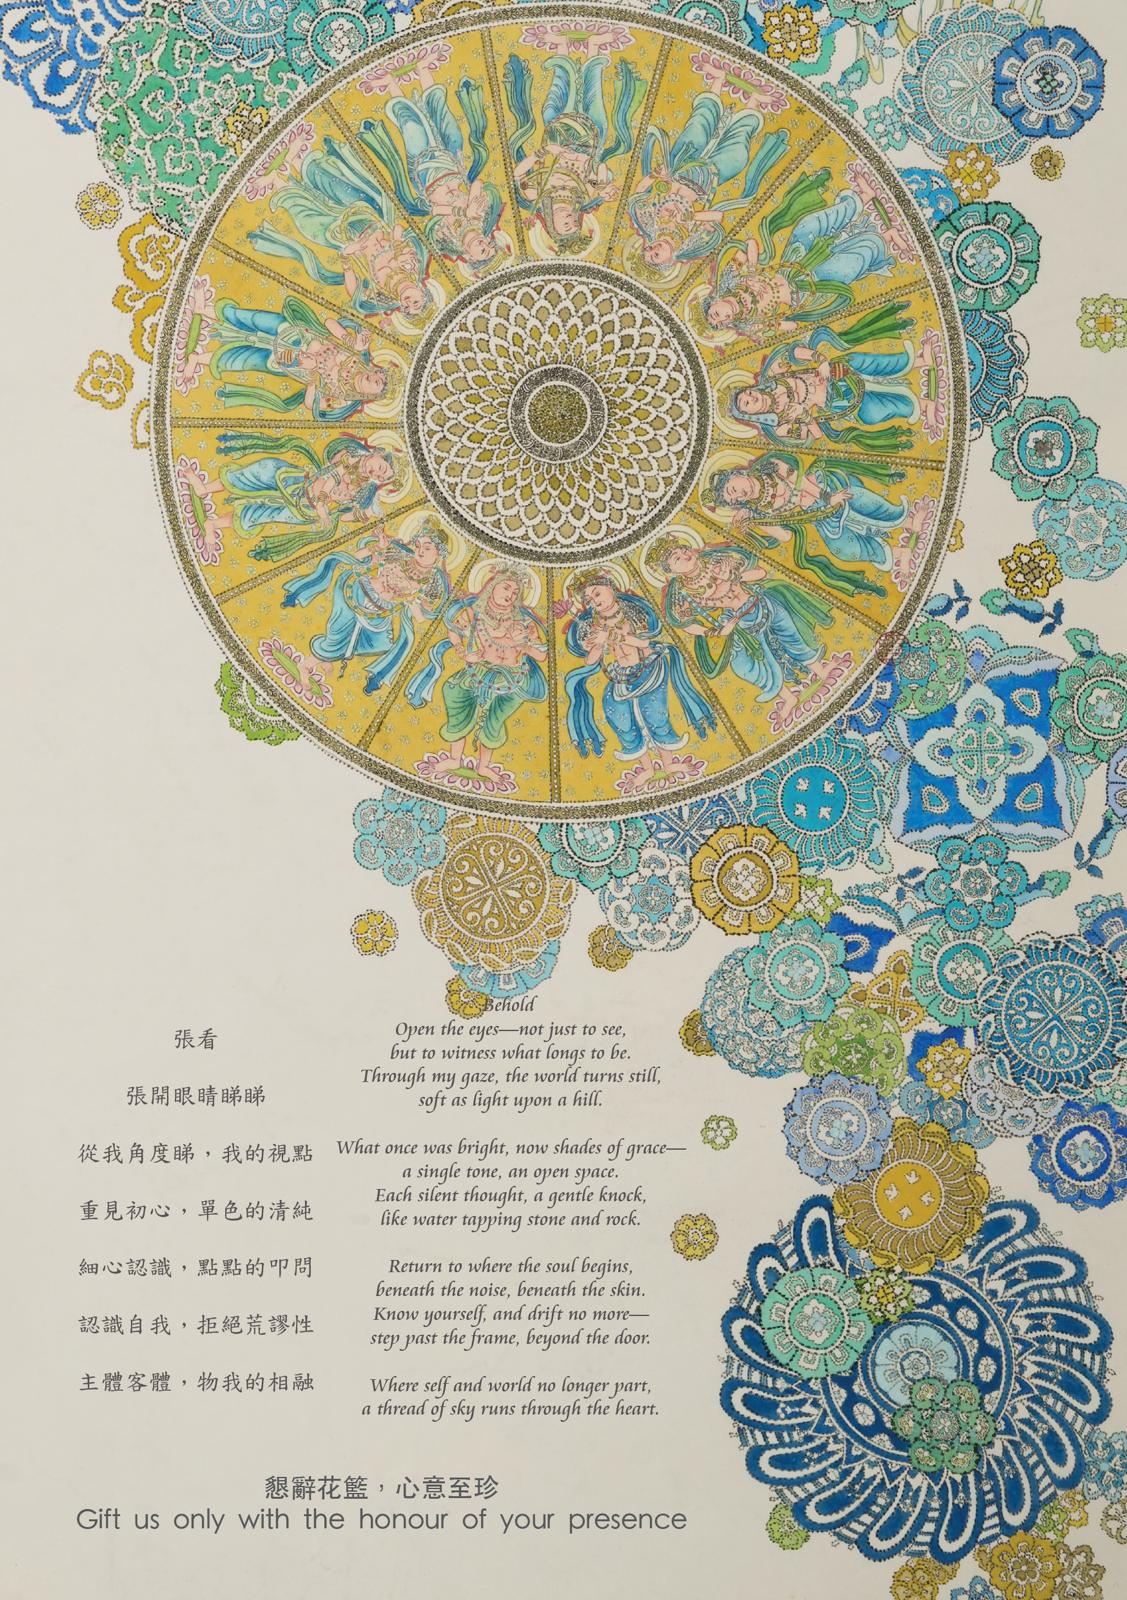 張看
張開眼睛睇睇
從我角度睇，我的視點
重見初心，單色的清純
細心認識，點點的叩問
認識自我，拒絕荒謬性
主體客體，物我的相融
Behold
Open the eyes—not just to see,
but to witness what longs to be.
Through my gaze, the world turns still,
soft as light upon a hill.
What once was bright, now shades of grace—
a single tone, an open space.
Each silent thought, a gentle knock,
like water tapping stone and rock.
Return to where the soul begins,
beneath the noise, beneath the skin.
Know yourself, and drift no more—
step past the frame, beyond the door.
Where self and world no longer part,
a thread of sky runs through the heart.
懇辭花籃，心意至珍
Gift us only with the honour of your presence